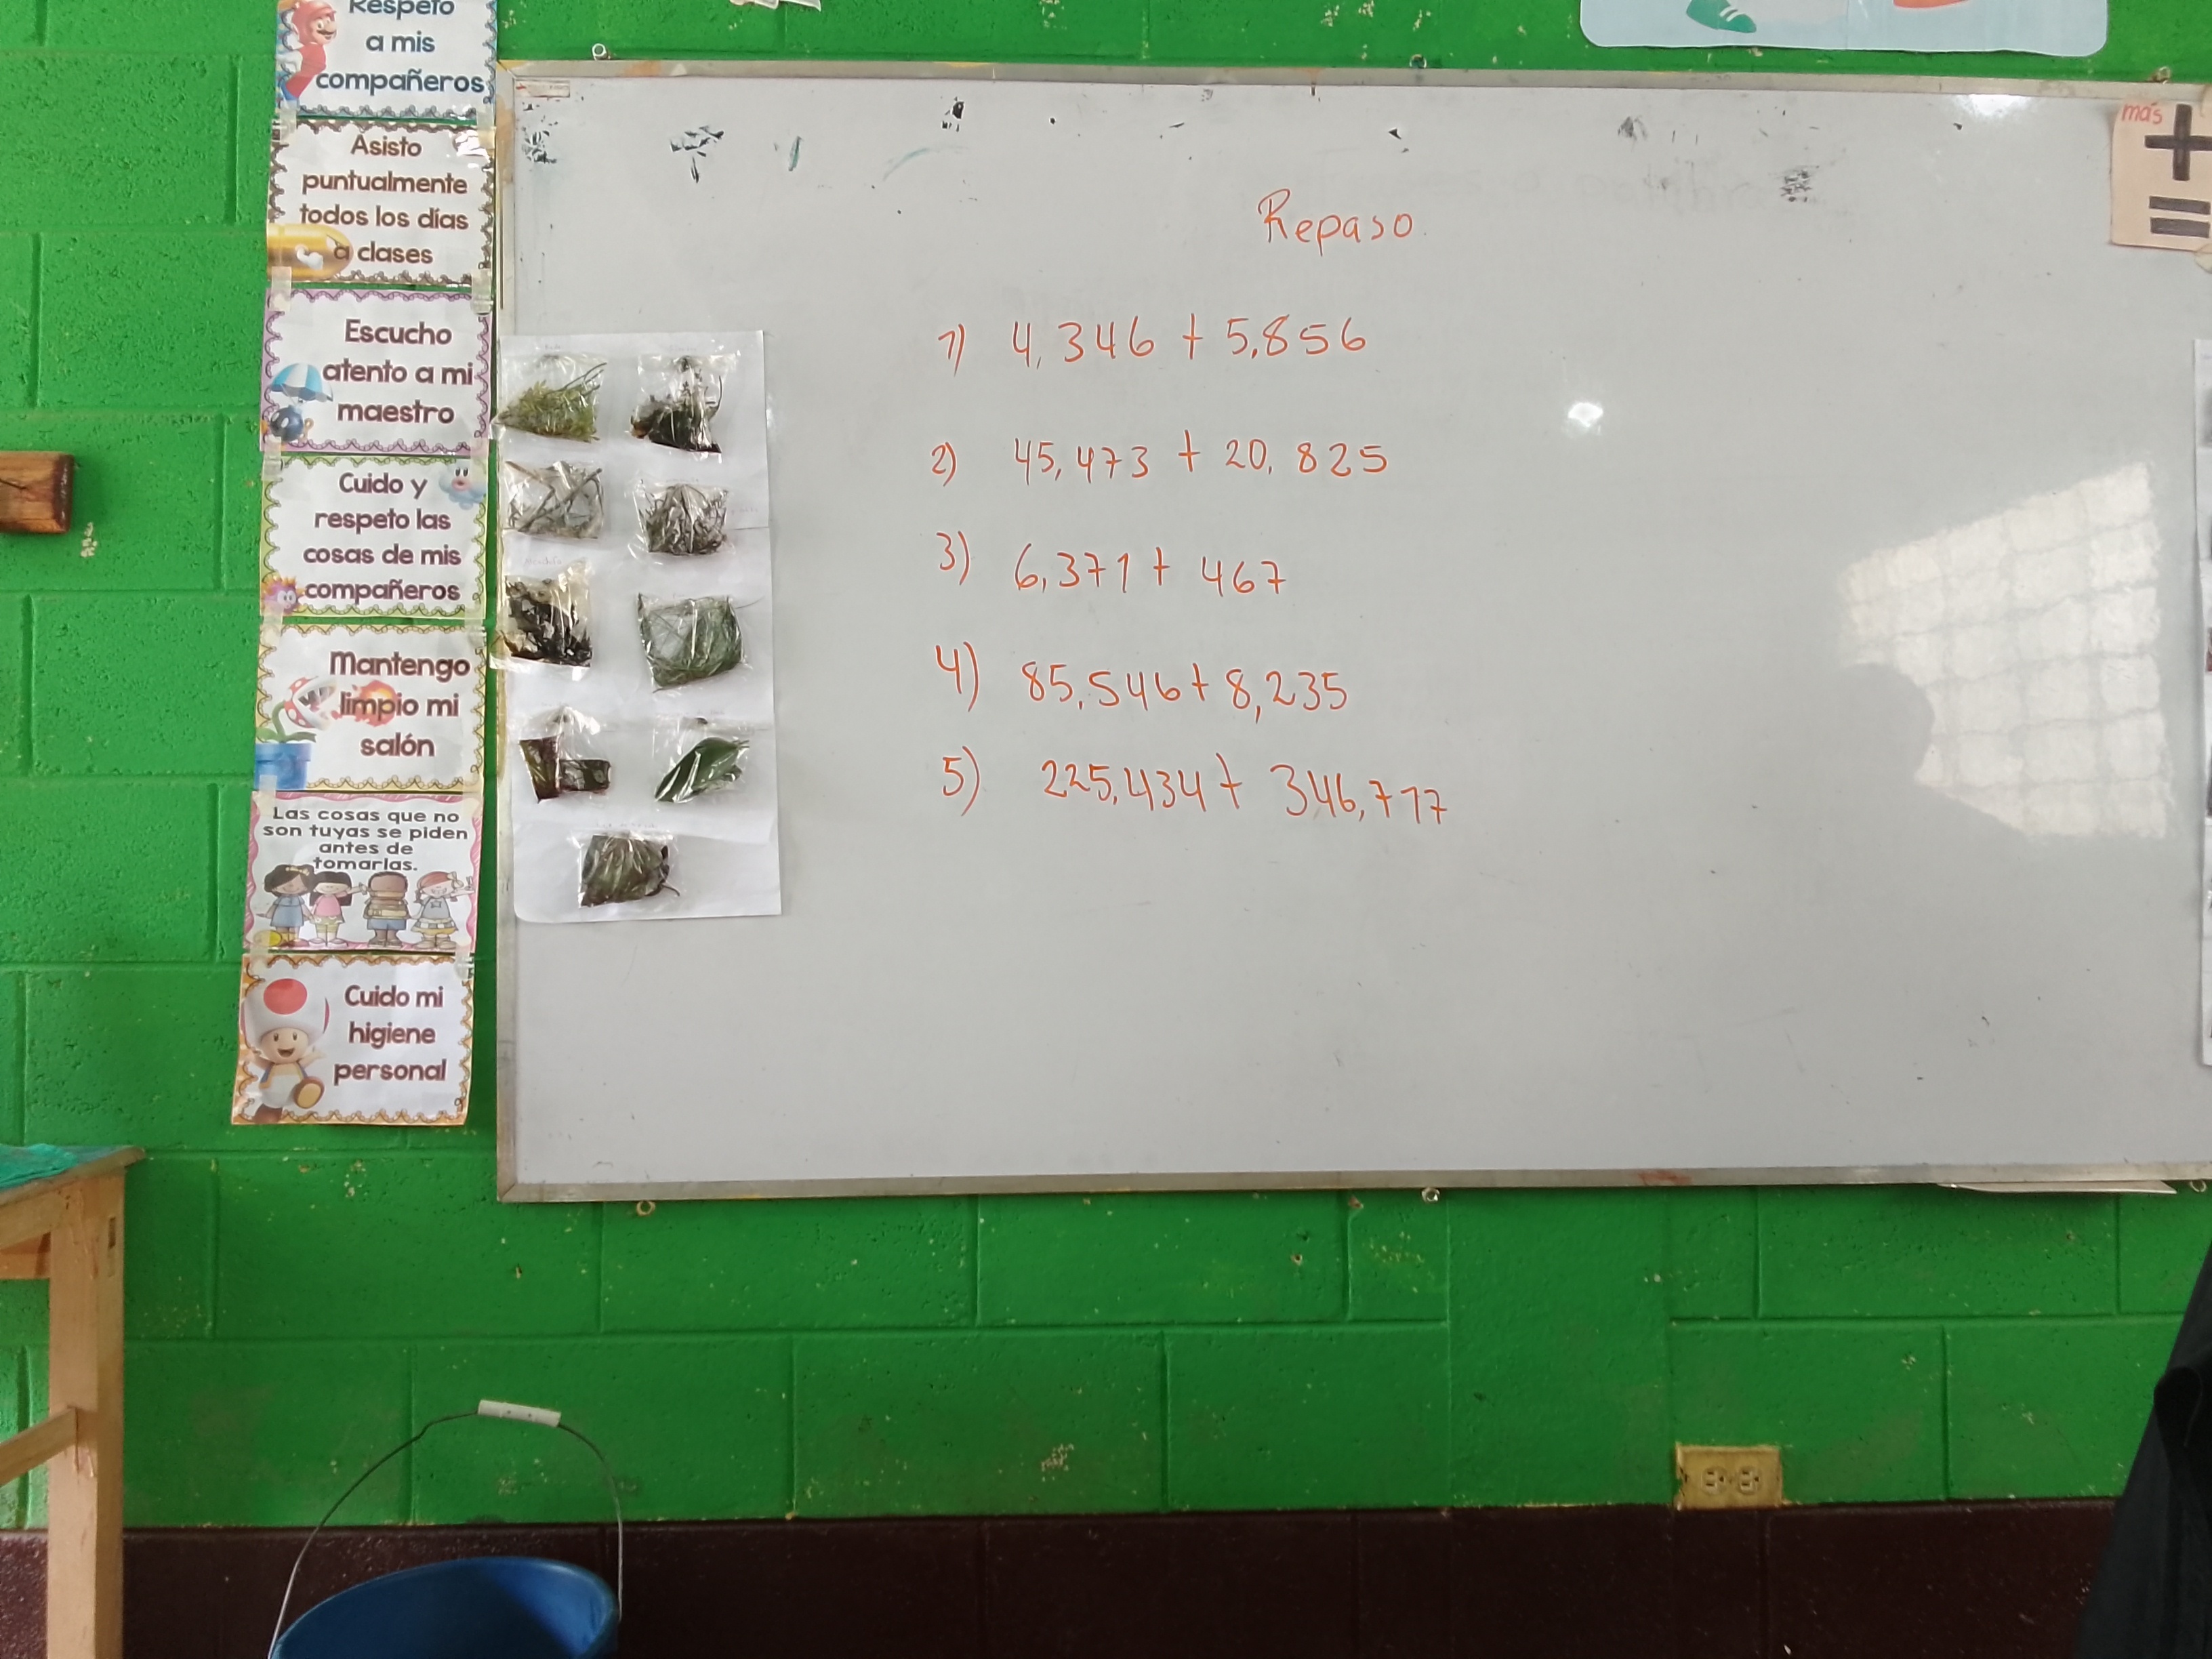 Respeto
a mis
compañeros
Asisto
puntualmente
todos los días
a clases
Escucho
atento a mi
maestro
Cuido y
respeto las
cosas de mis
compañeros
Mantengo
limpio mi
salón
Las cosas que no
son tuyas se piden
antes de
tomarlas.
Cuido mi
higiene
personal
Repaso
1) 4,346 + 5,856
2) 45,473 + 20,825
3) 6,371 + 467
4) 85,546 + 8,235
5) 225,434 + 346,717
más
+
=